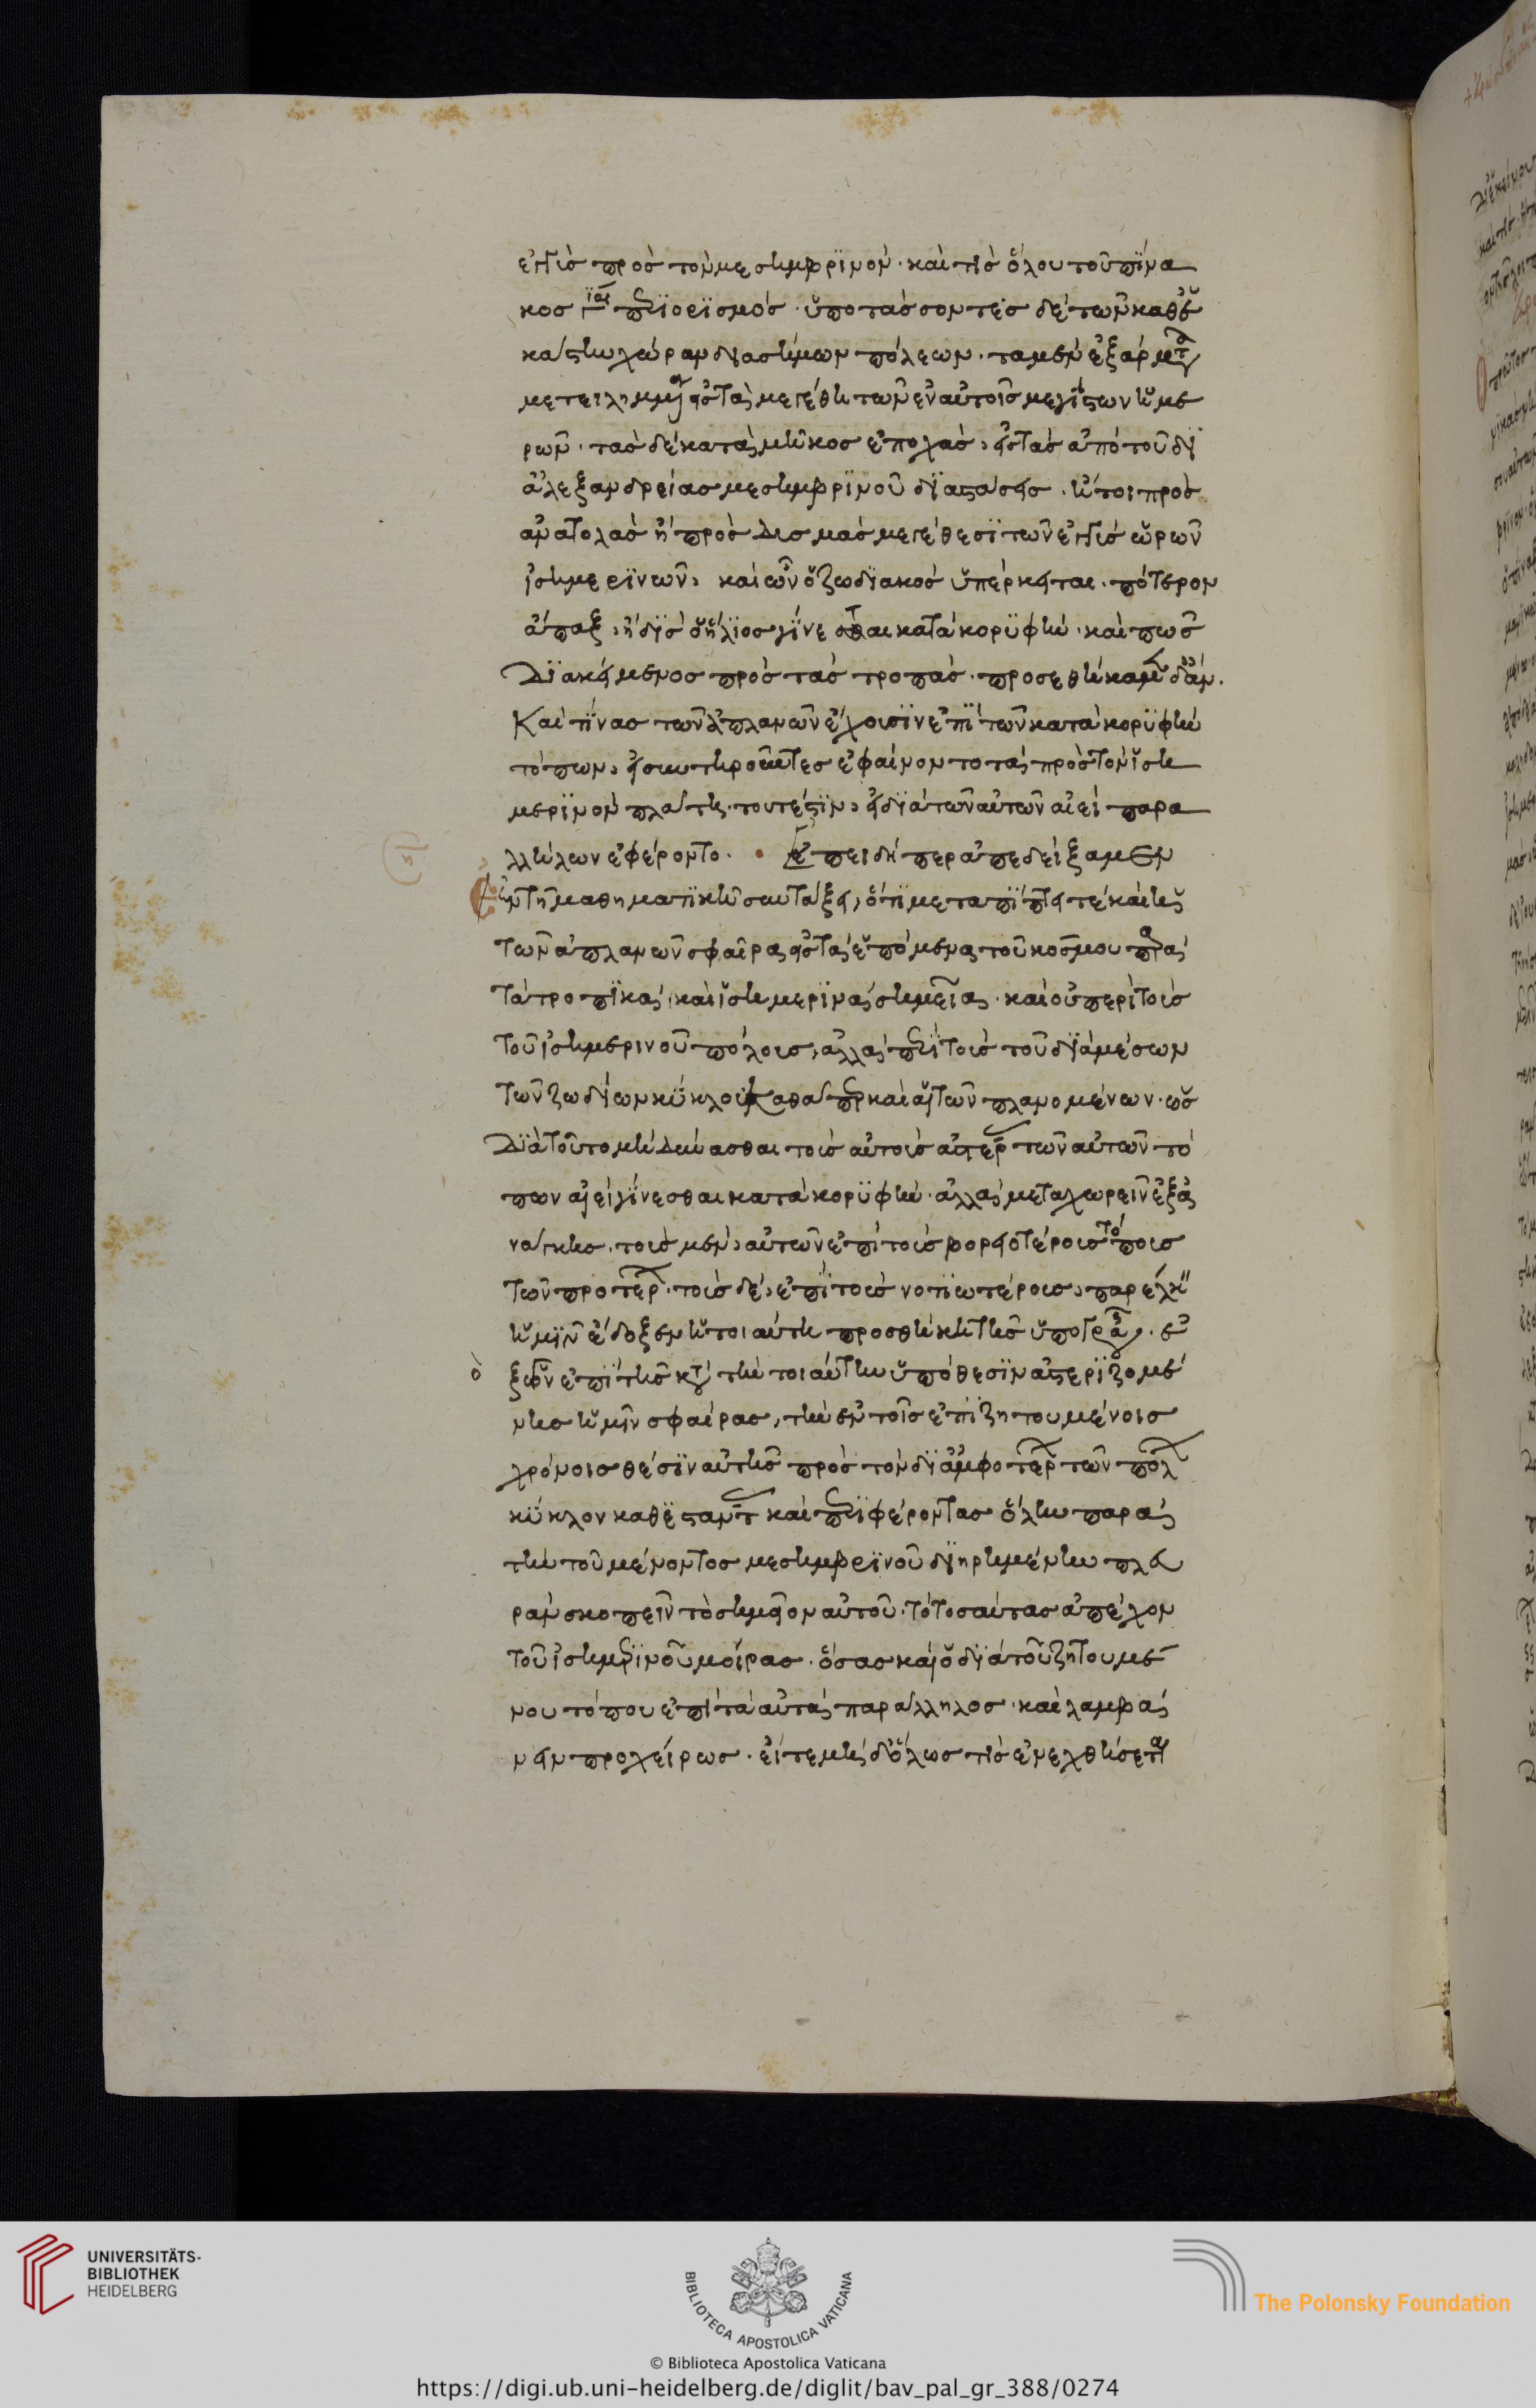 ἐγγὺς πρὸς τὸν μεσημβρινὸν. καὶ τίς ὅλου τοῦ πίνα
κος περιορισμὸς. ὑποτάσσοντες δὲ τῶν καθ' ἑ
κάστην χώραν διασήμων πόλεων. τὰ μὲν ἐξάρματα
μετειλημμένα εἰς τὰ μεγέθη τῶν ἐν αὐτοῖς μεγίστων ἡμε
ρῶν. τὰς δὲ κατὰ μῆκος ἐποχὰς, εἰς τὰς ἀπὸ τοῦ δι'
ἀλεξανδρείας μεσημβρινοῦ διαστάσεις. ἤτοι πρὸς
ἀνατολὰς ἢ πρὸς δυσμὰς μεγέθεσι τῶν ἐγγὺς ὡρῶν
ἰσημερινῶν, καὶ ὧν ὁ ζωδιακὸς ὑπέρκειται. πότερον
ἅπαξ, ἢ δὶς ὁ ἥλιος γίνεται κατὰ κορυφὴν. καὶ πῶς
διακείμενος πρὸς τὰς τροπὰς. προσεθήκαμεν δ' ἂν.
καὶ τίνας τῶν ἀπλανῶν ἔχουσιν ἐπὶ τῶν κατὰ κορυφὴν
τόπων, εἰ συντηροῦντες ἐφαίνοντο τὰ πρὸς τὸν ἰση
μερινὸν πλάτη. τουτέστιν, εἰ διὰ τῶν αὐτῶν αἰεὶ παρα
λλήλων ἐφέροντο. ἐπειδήπερ ἀπεδείξαμεν
ἐν τῇ μαθηματικῇ συντάξει, ὅτι μεταπίπτει τὲ καὶ ἡ
τῶν ἀπλανῶν σφαῖρα εἰς τὰ ἑπόμενα τοῦ κόσμου παρὰ
τὰ τροπικὰ καὶ ἰσημερινὰ σημεῖα. καὶ οὐ περὶ τοῖς
τοῦ ἰσημερινοῦ πόλοις, ἀλλὰ περὶ τοῖς τοῦ διὰ μέσων
τῶν ζωδίων κύκλου καθάπερ καὶ αἱ τῶν πλανομένων. ὡς
διὰ τοῦτο μὴ δύνασθαι τοὺς αὐτοὺς ἀστέρας τῶν αὐτῶν τό
πων αἰεὶ γίνεσθαι κατὰ κορυφὴν. ἀλλὰ μεταχωρεῖν ἐξ ἀ
νάγκης. τοὺς μὲν, αὐτῶν ἐπὶ τοὺς βορειοτέρους τόπους
τῶν προτέρων. τοὺς δὲ, ἐπὶ τοὺς νοτιωτέρους, παρέλκειν
ἡμῖν ἔδοξεν ἡ τοιαύτη προσθήκη τῆς ὑπογραφῆς.
ἐξὸν ἐπὶ τῆς κατὰ τὴν τοιαύτην ὑπόθεσιν ἀστεριζομέ
νης ἡμῖν σφαίρας, τὴν ἐν τοῖς ἐπιζητουμένοις
χρόνοις θέσιν αὐτῆς πρὸς τὸν δι' ἀμφοτέρων τῶν πόλων
κύκλον καθιστάντας καὶ περιφέροντας ὅλην παρὰ
τὴν τοῦ μένοντος μεσημβρινοῦ διῃρημένην πλευ
ρὰν σκοπεῖν τὸ σημεῖον αὐτοῦ. τὸ τοσαύτας ἀπέχον
τοῦ ἰσημερινοῦ μοίρας. ὅσας καὶ ὁ διὰ τοῦ ζητουμέ
νου τόπου ἐπὶ τὰ αὐτὰ παράλληλος. καὶ λαμβά
νειν προχείρως. εἴτε μὴ δ' ὅλως τὶς ἐνεχθήσεται
UNIVERSITÄTS-
BIBLIOTHEK
HEIDELBERG
BIBLIOTECA APOSTOLICA VATICANA
The Polonsky Foundation
© Biblioteca Apostolica Vaticana
https://digi.ub.uni-heidelberg.de/diglit/bav_pal_gr_388/0274